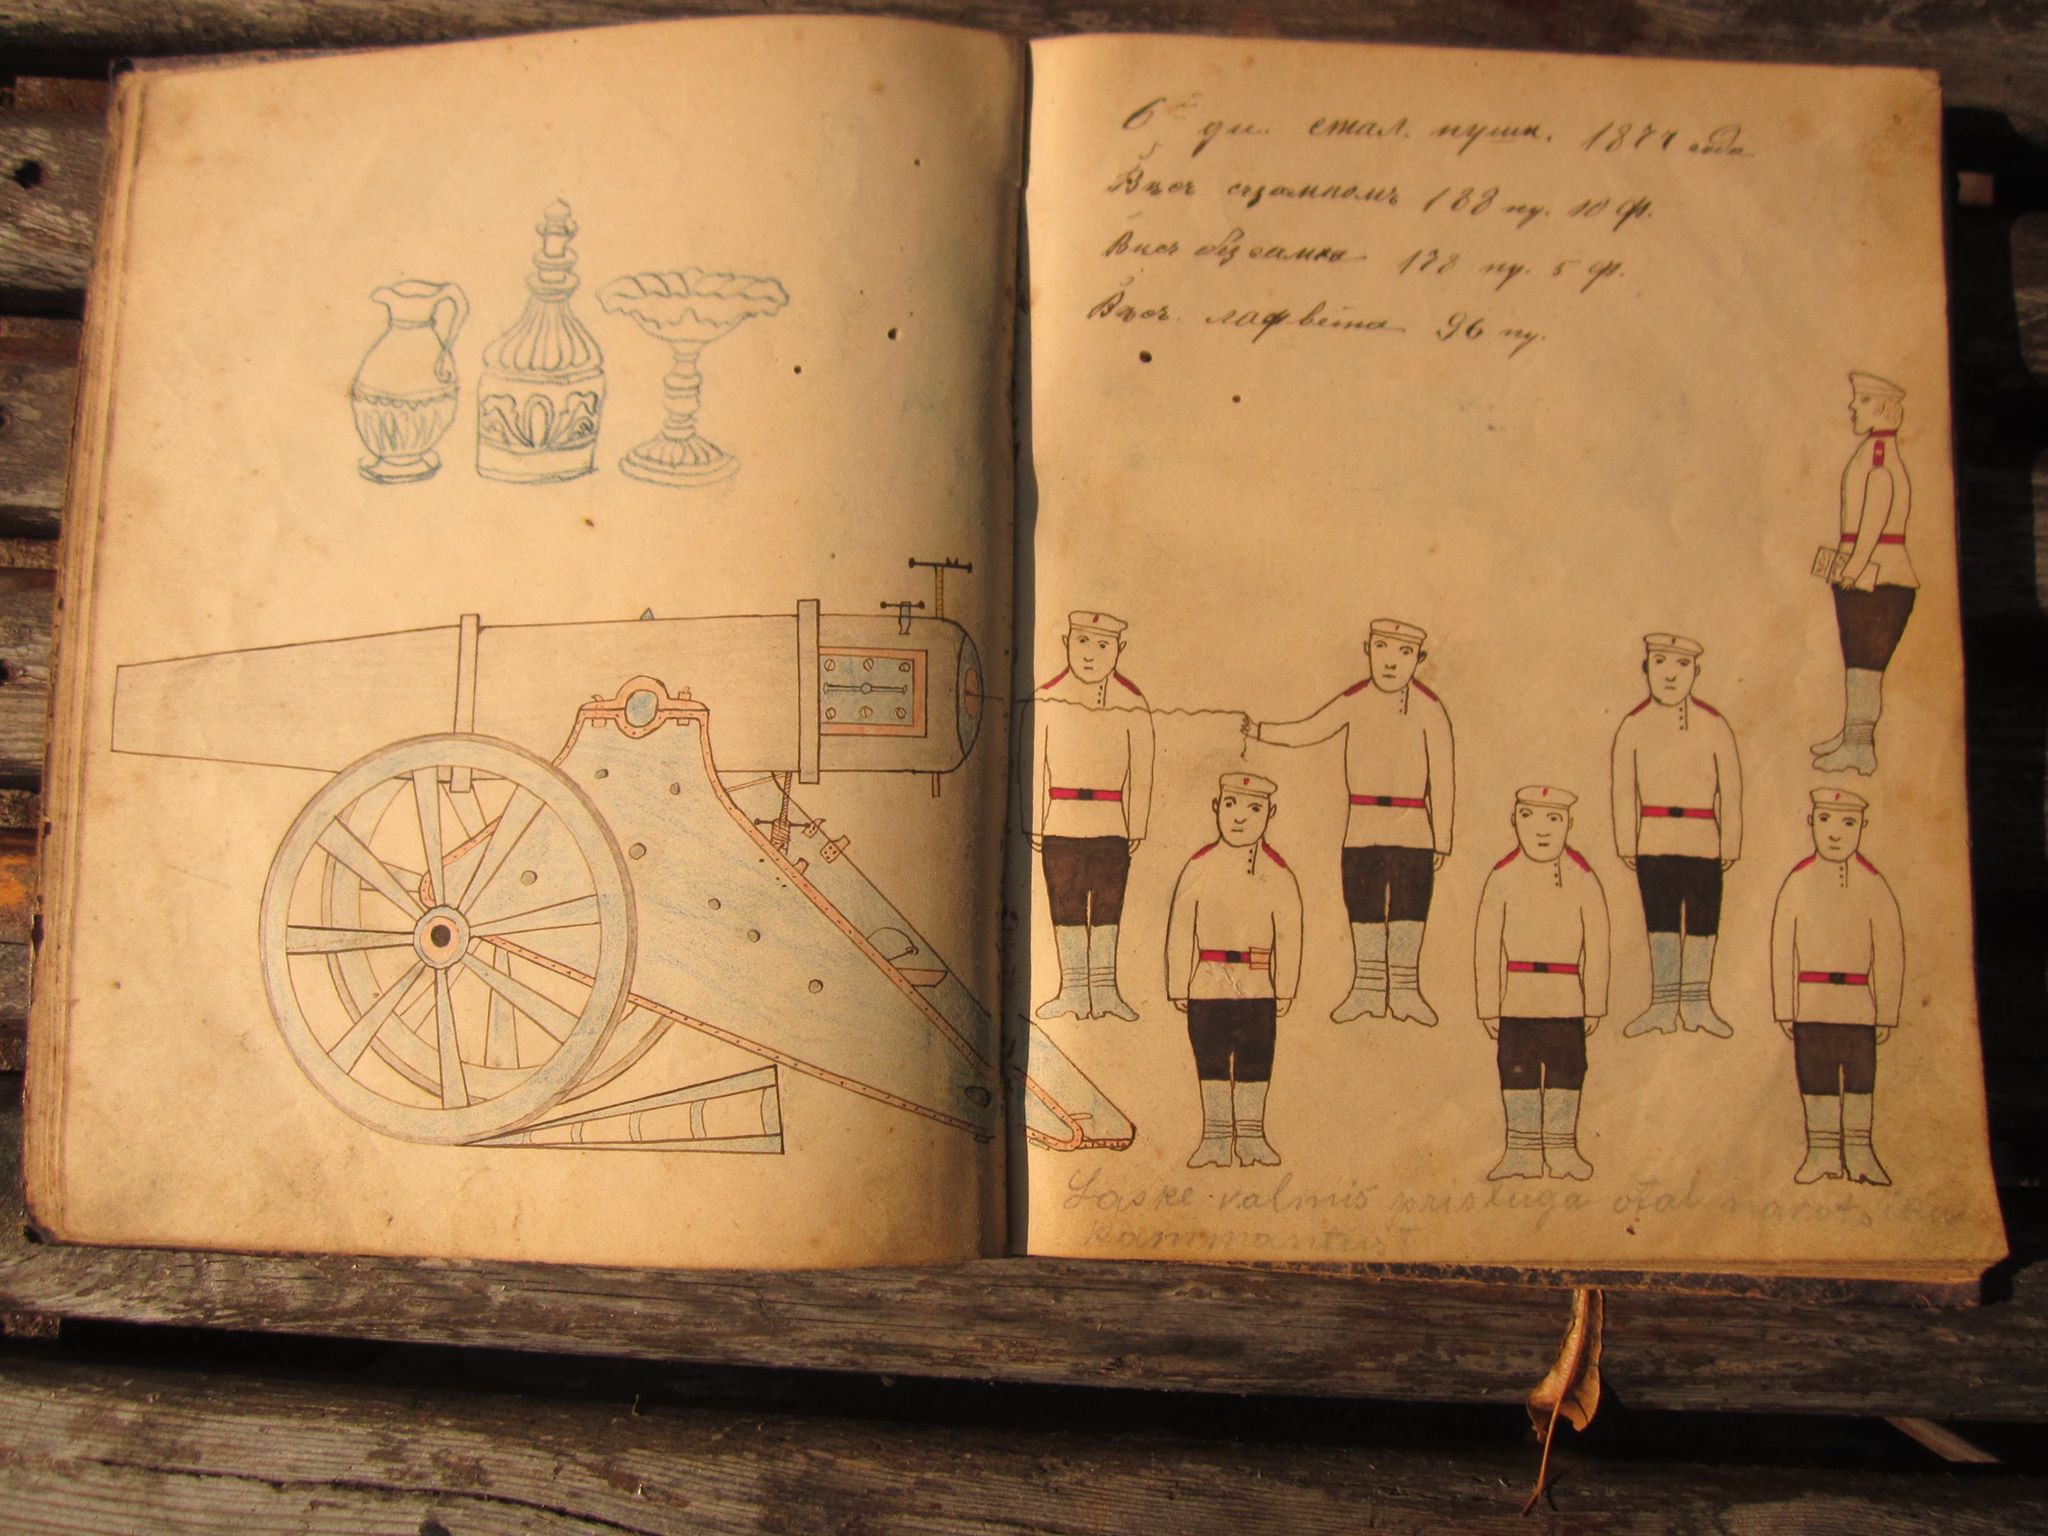 6й дм. стал. пушк. 1877 года
Вѣсъ съ замкомъ 188 пу. 10 ф.
Вѣсъ без замка 178 пу. 5 ф.
Вѣсъ лафвета 96 пу.
Laske valmis prisluga otal narot,
kammantust